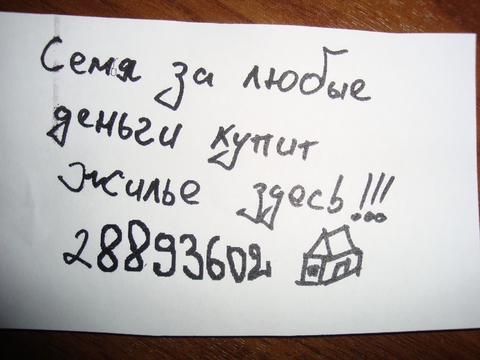 Семя за любые
деньги купит
жилье здесь!!!
28893602